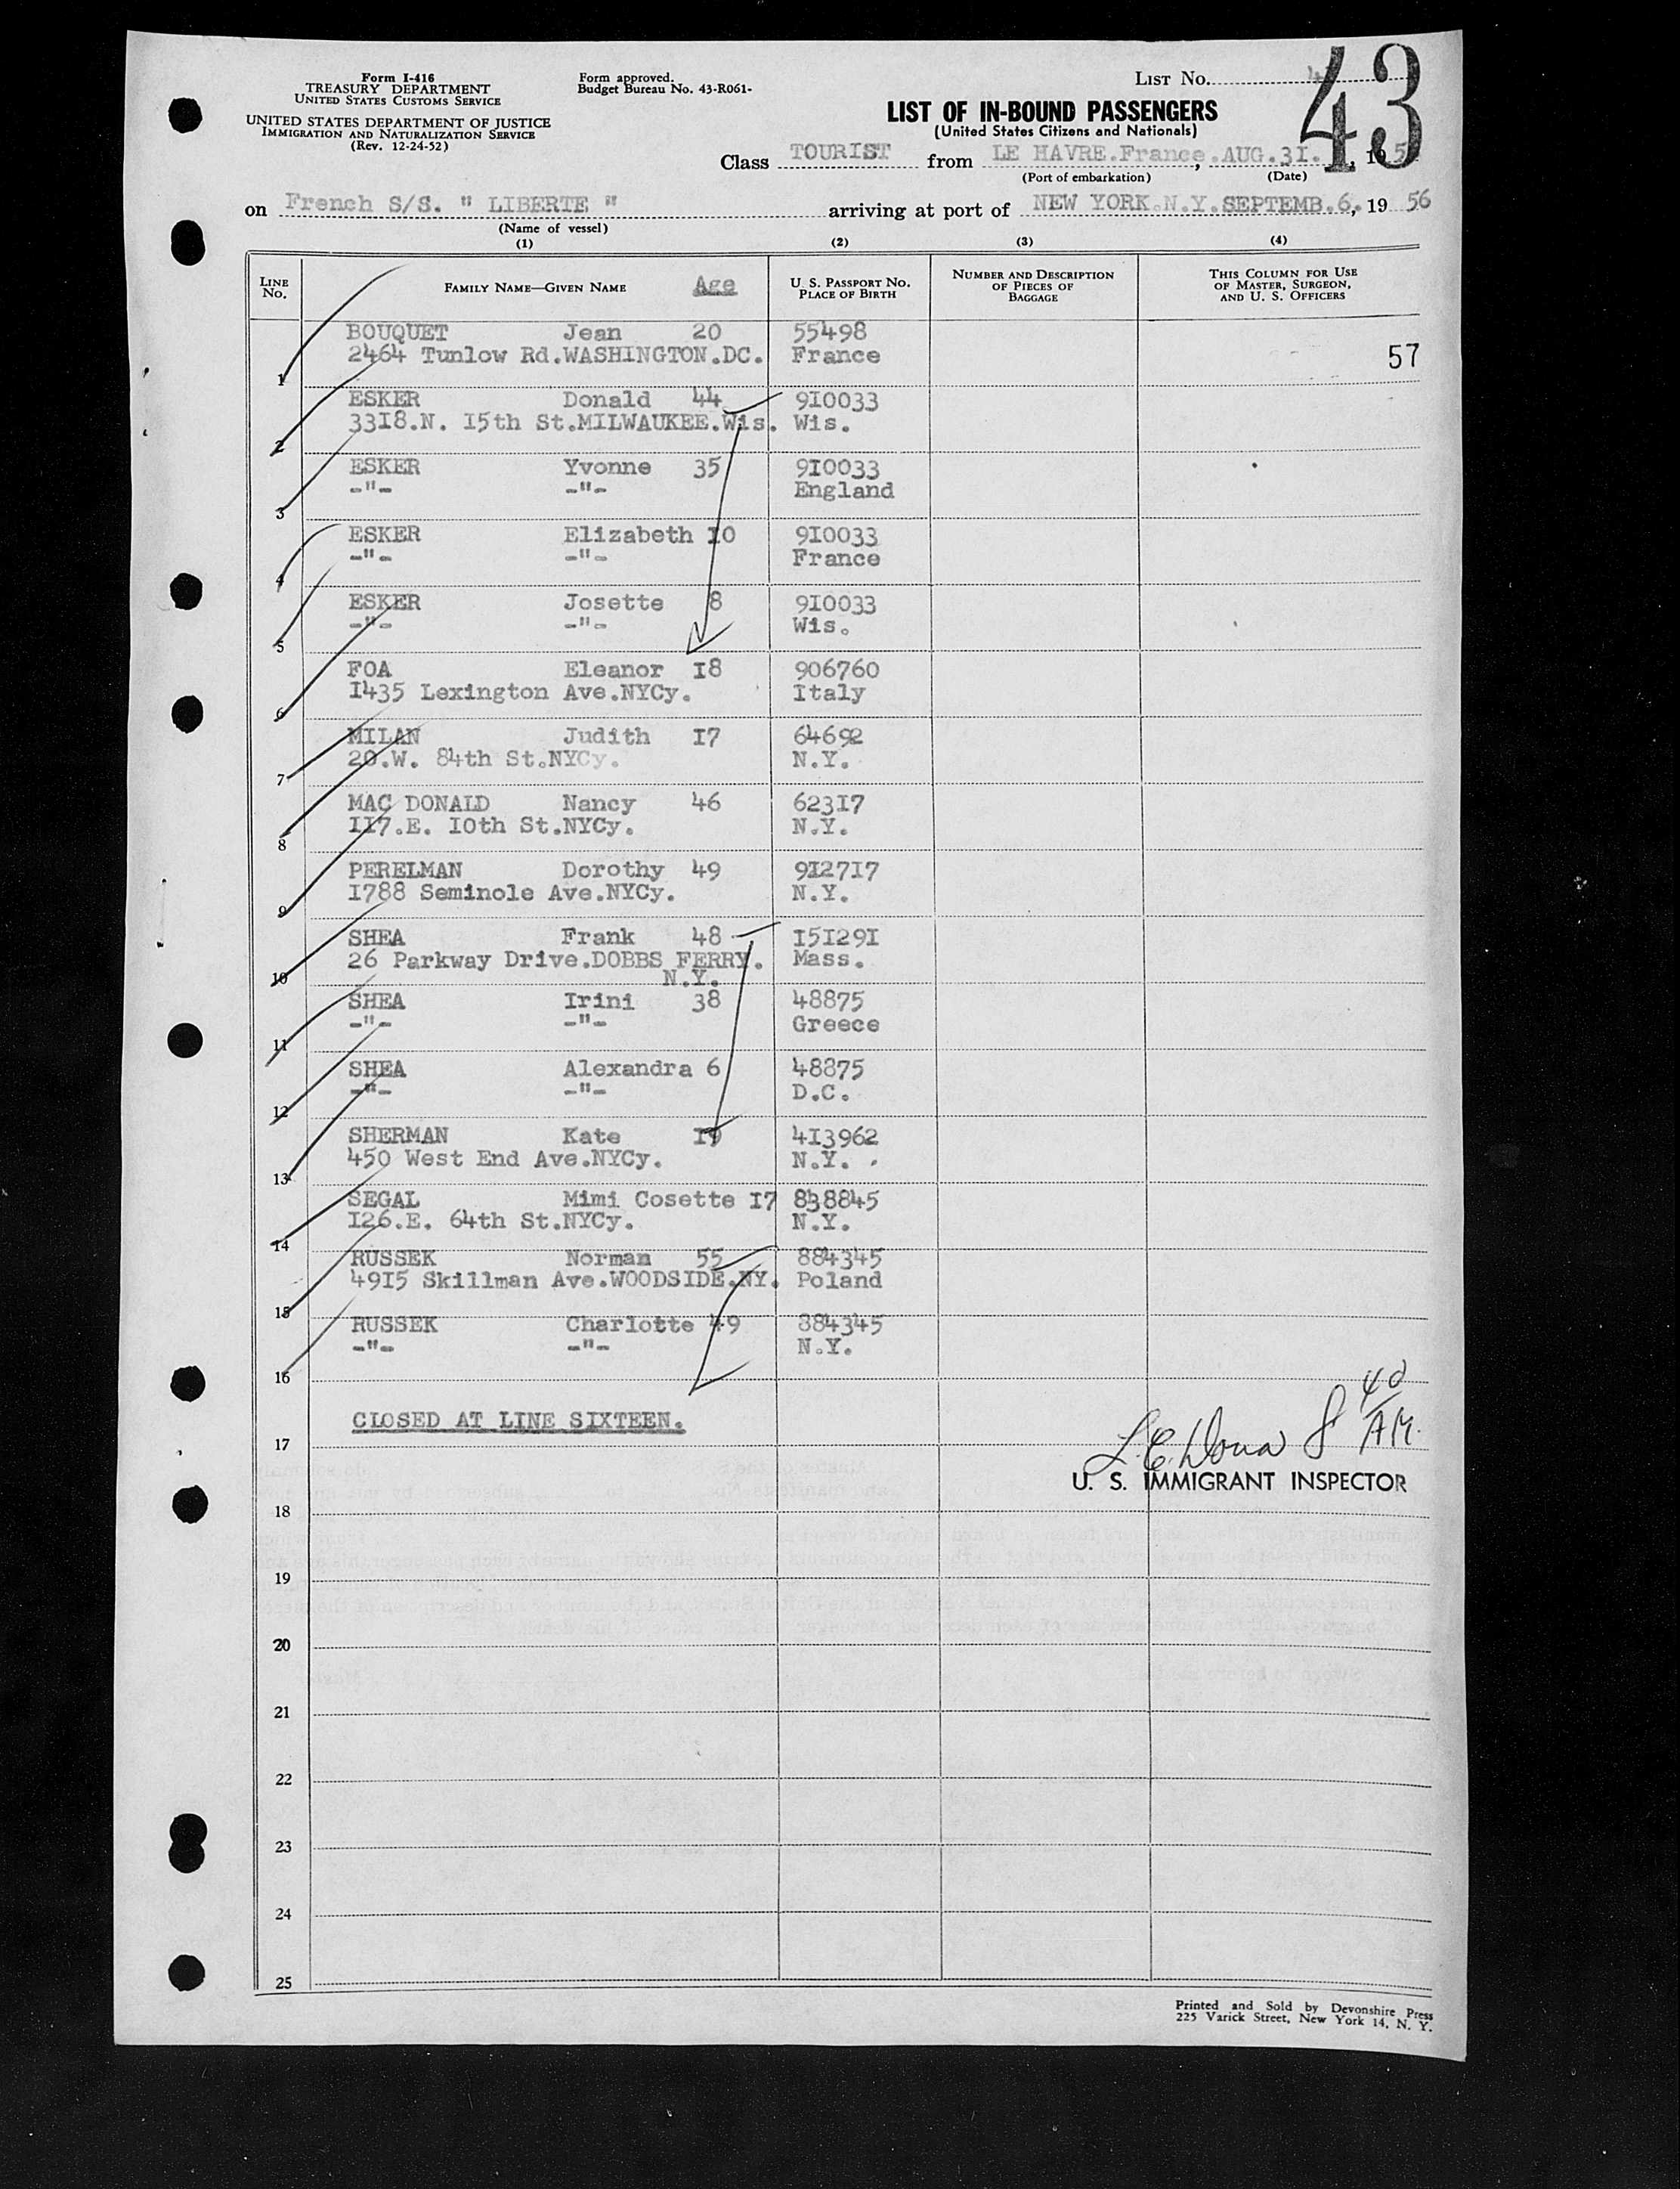 Form I-416
TREASURY DEPARTMENT
UNITED STATES CUSTOMS SERVICE
UNITED STATES DEPARTMENT OF JUSTICE
IMMIGRATION AND NATURALIZATION SERVICE
(Rev. 12-24-52)
Form approved.
Budget Bureau No. 43-R061-
LIST NO.
43
LIST OF IN-BOUND PASSENGERS
(United States Citizens and Nationals)
Class TOURIST from LE HAVRE.France, AUG.3I., 19
(Port of embarkation) (Date)
on French S/S. " LIBERTE " arriving at port of NEW YORK.N.Y.SEPTEMB.6., 19 56
(Name of vessel)
(1) (2) (3) (4)
LINE NO. FAMILY NAME—GIVEN NAME Age U. S. PASSPORT NO. PLACE OF BIRTH NUMBER AND DESCRIPTION OF PIECES OF BAGGAGE THIS COLUMN FOR USE OF MASTER, SURGEON, AND U. S. OFFICERS
BOUQUET Jean 20 55498
2464 Tunlow Rd.WASHINGTON.DC. France 57
1
ESKER Donald 44 9I0033
33I8.N. I5th St.MILWAUKEE.Wis. Wis.
2
ESKER Yvonne 35 9I0033
-"- -"- England
3
ESKER Elizabeth I0 9I0033
-"- -"- France
4
ESKER Josette 8 9I0033
-"- -"- Wis.
5
FOA Eleanor I8 906760
I435 Lexington Ave.NYCy. Italy
6
MILAN Judith I7 64692
20.W. 84th St.NYCy. N.Y.
7
MAC DONALD Nancy 46 623I7
II7.E. I0th St.NYCy. N.Y.
8
PERELMAN Dorothy 49 9I27I7
I788 Seminole Ave.NYCy. N.Y.
9
SHEA Frank 48 I5I29I
26 Parkway Drive.DOBBS FERRY. Mass.
N.Y.
10
SHEA Irini 38 48875
-"- -"- Greece
11
SHEA Alexandra 6 48875
-"- -"- D.C.
12
SHERMAN Kate I9 4I3962
450 West End Ave.NYCy. N.Y.
13
SEGAL Mimi Cosette I7 838845
I26.E. 64th St.NYCy. N.Y.
14
RUSSEK Norman 55 884345
49I5 Skillman Ave.WOODSIDE.NY. Poland
15
RUSSEK Charlotte 49 884345
-"- -"- N.Y.
16
CLOSED AT LINE SIXTEEN.
17
8 40 AM.
U. S. IMMIGRANT INSPECTOR
18
19
20
21
22
23
24
25
Printed and Sold by Devonshire Press
225 Varick Street, New York 14, N. Y.